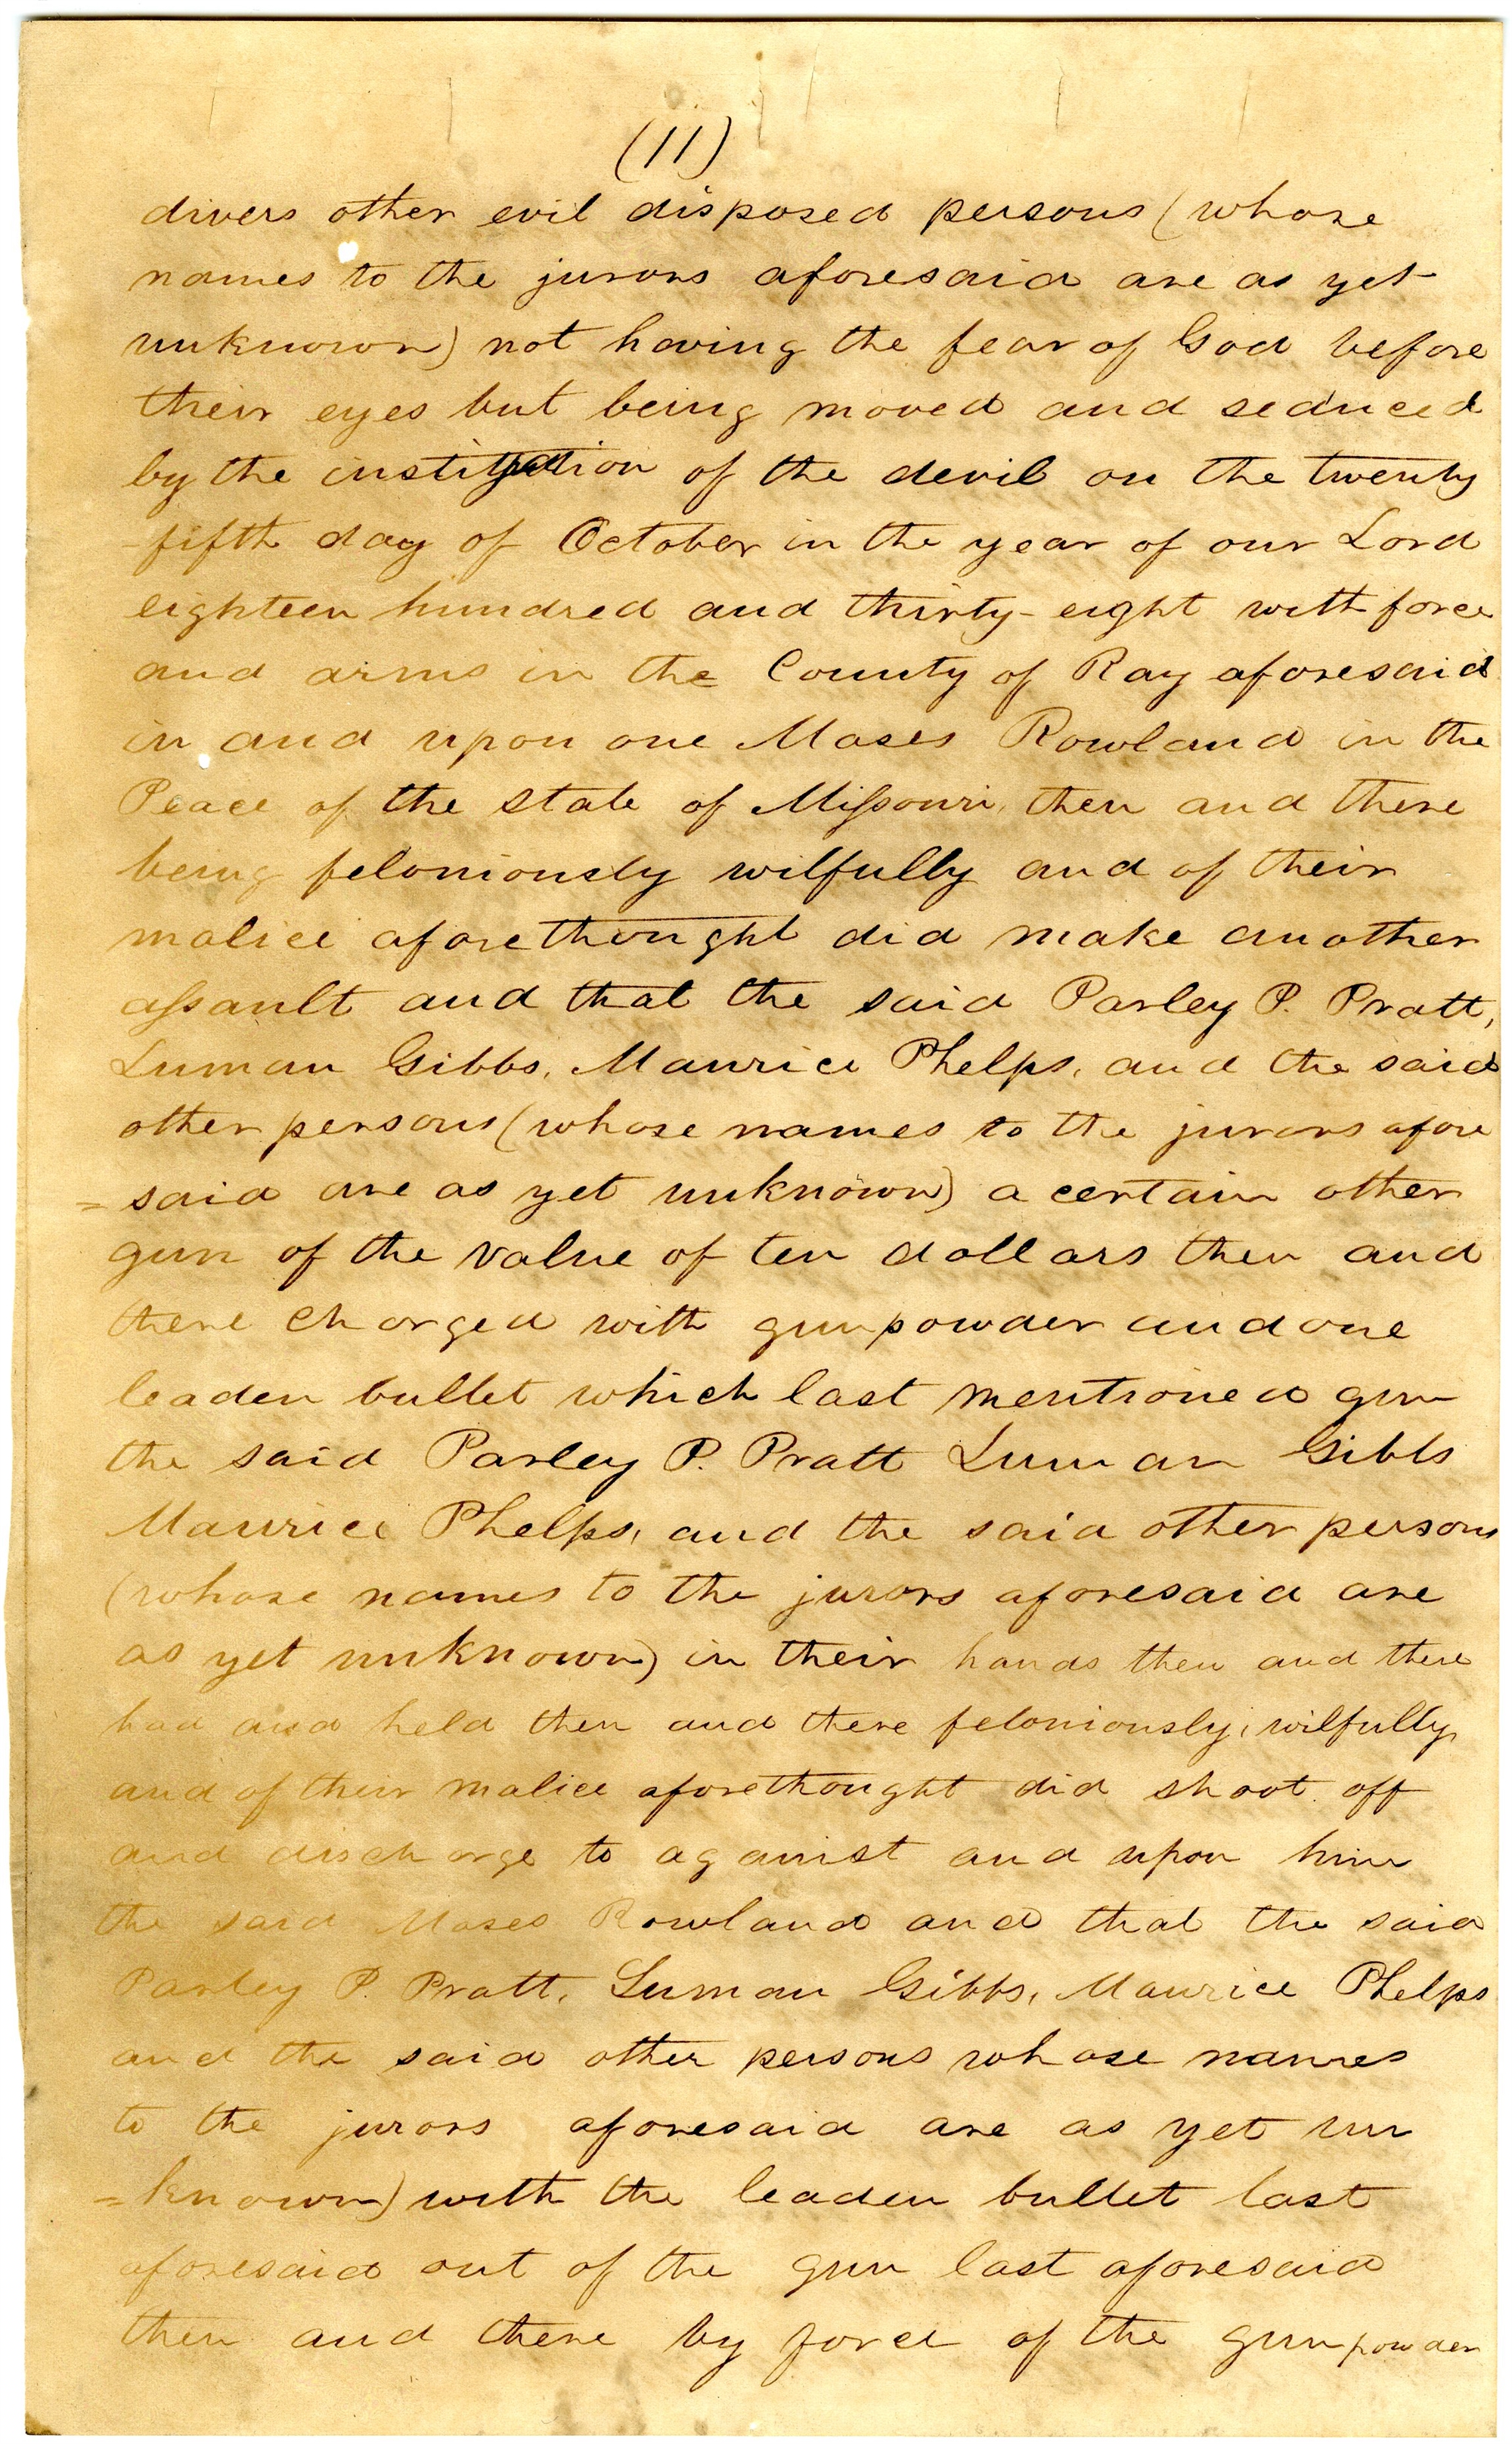 (11)
divers other evil disposed persons (whose
names to the jurors aforesaid are as yet
unknown) not having the fear of God before
their eyes but being moved and seduced
by the instigation of the devil on the twenty
fifth day of October in the year of our Lord
eighteen hundred and thirty-eight with force
and arms in the County of Ray aforesaid
in and upon one Moses Rowland in the
Peace of the state of Missouri, then and there
being feloniously wilfully and of their
malice aforethought did make another
assault and that the said Parley P. Pratt,
Luman Gibbs, Maurice Phelps, and the said
other persons (whose names to the jurors afore
= said are as yet unknown) a certain other
gun of the value of ten dollars then and
there charged with gunpowder and one
leaden bullet which last mentioned gun
the said Parley P. Pratt Luman Gibbs
Maurice Phelps, and the said other persons
(whose names to the jurors aforesaid are
as yet unknown) in their hands then and there
had and held then and there feloniously, wilfully,
and of their malice aforethought did shoot off
and discharge to against and upon him
the said Moses Rowland and that the said
Parley P. Pratt, Luman Gibbs, Maurice Phelps
and the said other persons whose names
to the jurors aforesaid are as yet un
= known) with the leaden bullet last
aforesaid out of the gun last aforesaid
then and there by force of the gunpowder